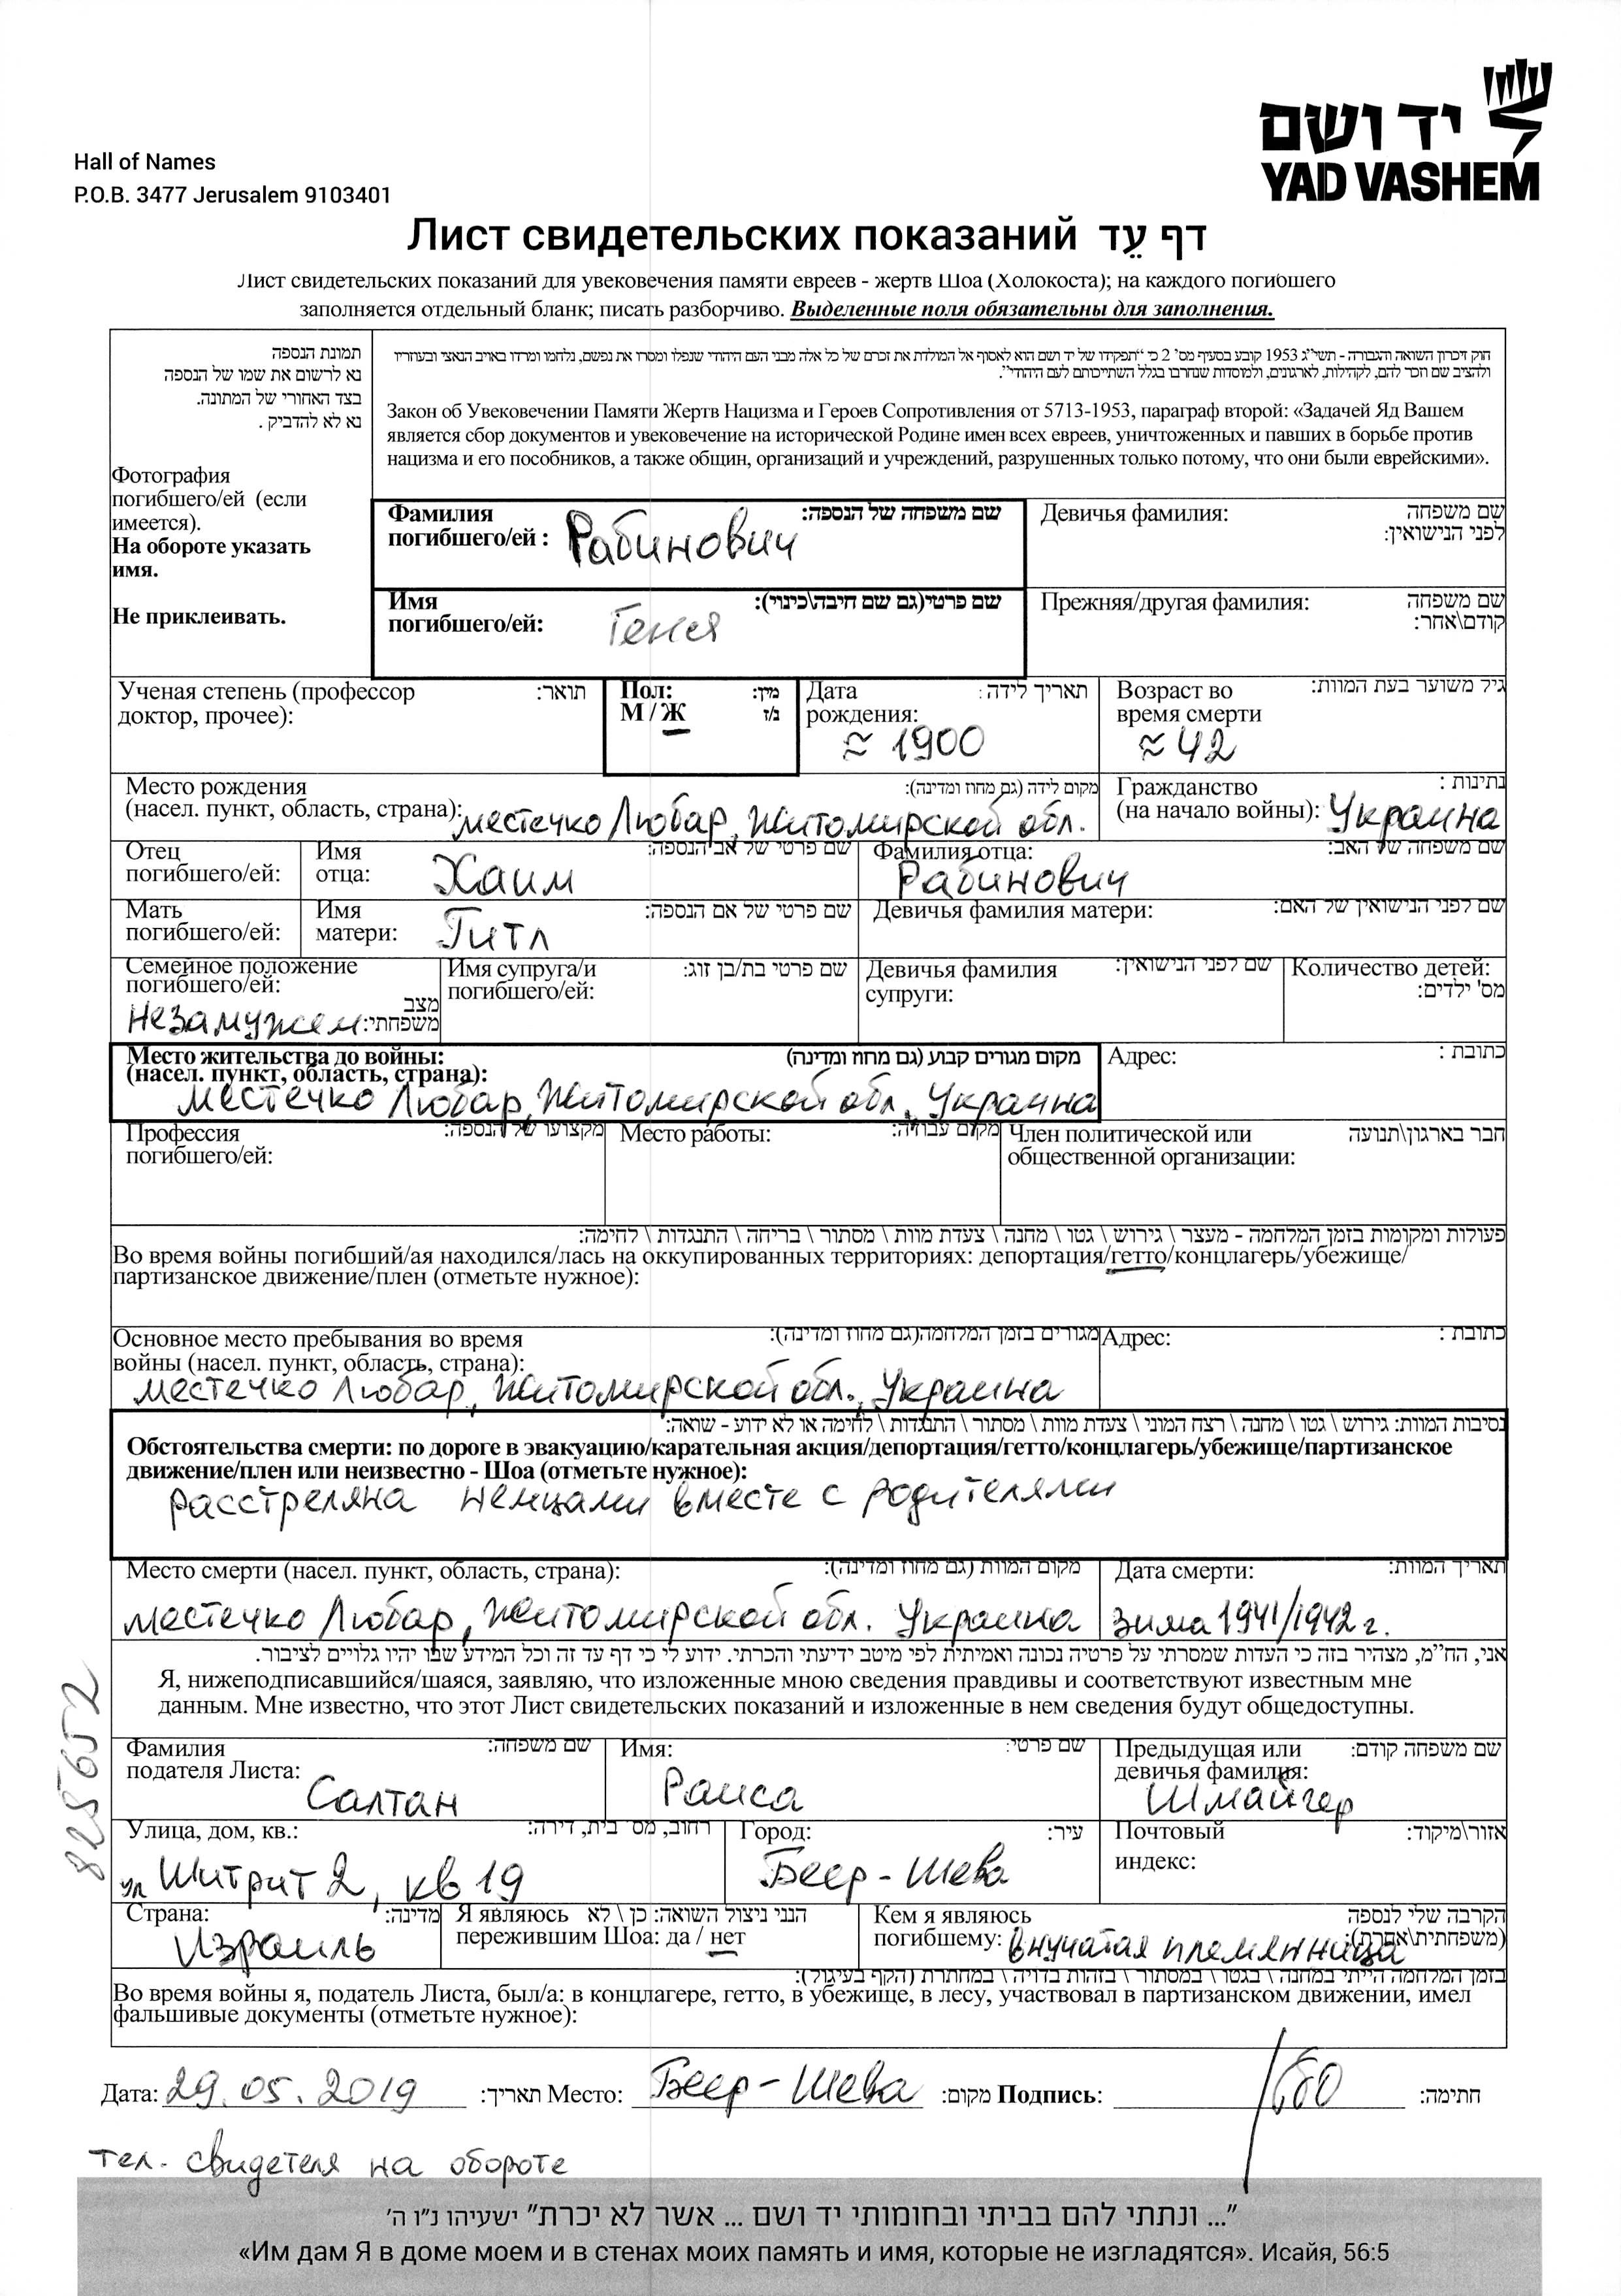 יד ושם
YAD VASHEM
Hall of Names
P.O.B. 3477 Jerusalem 9103401
Лист свидетельских показаний דף עֵד
Лист свидетельских показаний для увековечения памяти евреев - жертв Шоа (Холокоста); на каждого погибшего
заполняется отдельный бланк; писать разборчиво. Выделенные поля обязательны для заполнения.
תמונת הנספה
נא לרשום את שמו של הנספה
בצד האחורי של המתונה.
נא לא להדביק .
Фотография
погибшего/ей (если
имеется).
На обороте указать
имя.
Не приклеивать.
חוק זיכרון השואה והגבורה - תשי"ג 1953 קובע בסעיף מס' 2 כי "תפקידו של יד ושם הוא לאסוף אל המולדת את זכרם של כל אלה מבני העם היהודי שנפלו ומסרו את נפשם, נלחמו ומרדו באויב הנאצי ובעוזריו
ולהציב שם וזכר להם, לקהילות, לארגונים, ולמוסדות שנחרבו בגלל השתייכותם לעם היהודי".
Закон об Увековечении Памяти Жертв Нацизма и Героев Сопротивления от 5713-1953, параграф второй: «Задачей Яд Вашем
является сбор документов и увековечение на исторической Родине имен всех евреев, уничтоженных и павших в борьбе против
нацизма и его пособников, а также общин, организаций и учреждений, разрушенных только потому, что они были еврейскими».
Фамилия שם משפחה של הנספה:
погибшего/ей : Рабинович
Девичья фамилия: שם משפחה
לפני הנישואין:
Имя שם פרטי(גם שם חיבה\כינוי):
погибшего/ей: Геня
Прежняя/другая фамилия: שם משפחה
קודם\אחר:
Ученая степень (профессор תואר:
доктор, прочее):
Пол: מין:
М / Ж ז/נ
Дата תאריך לידה:
рождения:
≈ 1900
Возраст во גיל משוער בעת המוות:
время смерти
≈ 42
Место рождения מקום לידה (גם מחוז ומדינה):
(насел. пункт, область, страна): местечко Любар, Житомирской обл.
Гражданство נתינות :
(на начало войны): Украина
Отец
погибшего/ей:
Имя שם פרטי של אב הנספה:
отца: Хаим
Фамилия отца: שם משפחה של האב:
Рабинович
Мать
погибшего/ей:
Имя שם פרטי של אם הנספה:
матери: Гитл
Девичья фамилия матери: שם לפני הנישואין של האם:
Семейное положение
погибшего/ей: מצב
незамужем משפחתי:
Имя супруга/и שם פרטי בת/בן זוג:
погибшего/ей:
Девичья фамилия שם לפני הנישואין:
супруги:
Количество детей:
מס' ילדים:
Место жительства до войны: מקום מגורים קבוע (גם מחוז ומדינה)
(насел. пункт, область, страна):
местечко Любар, Житомирской обл., Украина
Адрес: כתובת :
Профессия מקצועו של הנספה:
погибшего/ей:
Место работы: מקום עבודה:
Член политической или חבר בארגון\תנועה
общественной организации:
פעולות ומקומות בזמן המלחמה - מעצר \ גירוש \ גטו \ מחנה \ צעדת מוות \ מסתור \ בריחה \ התנגדות \ לחימה:
Во время войны погибший/ая находился/лась на оккупированных территориях: депортация/гетто/концлагерь/убежище/
партизанское движение/плен (отметьте нужное):
Основное место пребывания во время מגורים בזמן המלחמה(גם מחוז ומדינה):
войны (насел. пункт, область, страна):
местечко Любар, Житомирской обл., Украина
Адрес: כתובת :
נסיבות המוות: גירוש \ גטו \ מחנה \ רצח המוני \ צעדת מוות \ מסתור \ התנגדות \ לחימה או לא ידוע - שואה:
Обстоятельства смерти: по дороге в эвакуацию/карательная акция/депортация/гетто/концлагерь/убежище/партизанское
движение/плен или неизвестно - Шоа (отметьте нужное):
расстреляна немцами вместе с родителями
Место смерти (насел. пункт, область, страна): מקום המוות (גם מחוז ומדינה):
местечко Любар, Житомирской обл. Украина
Дата смерти: תאריך המוות:
зима 1941/1942 г.
אני, הח"מ, מצהיר בזה כי העדות שמסרתי על פרטיה נכונה ואמיתית לפי מיטב ידיעתי והכרתי. ידוע לי כי דף עד זה וכל המידע שבו יהיו גלויים לציבור.
Я, нижеподписавшийся/шаяся, заявляю, что изложенные мною сведения правдивы и соответствуют известным мне
данным. Мне известно, что этот Лист свидетельских показаний и изложенные в нем сведения будут общедоступны.
Фамилия שם משפחה:
подателя Листа: Салтан
Имя: שם פרטי:
Раиса
Предыдущая или שם משפחה קודם:
девичья фамилия:
Шмайгер
Улица, дом, кв.: רחוב, מס' בית, דירה:
ул Шитрит 2, кв 19
Город: עיר:
Беер-Шева
Почтовый אזור\מיקוד:
индекс:
Страна: מדינה:
Израиль
Я являюсь הנני ניצול השואה: כן \ לא
пережившим Шоа: да / нет
Кем я являюсь הקרבה שלי לנספה
погибшему: внучатая племянница (משפחתית\אחרת):
בזמן המלחמה הייתי במחנה \ בגטו \ במסתור \ בזהות בדויה \ במחתרת (הקף בעיגול):
Во время войны я, податель Листа, был/а: в концлагере, гетто, в убежище, в лесу, участвовал в партизанском движении, имел
фальшивые документы (отметьте нужное):
Дата: 29.05.2019 תאריך: Место: Беер-Шева מקום: Подпись: חתימה:
тел. свидетеля на обороте
8285652
"... ונתתי להם בביתי ובחומותי יד ושם ... אשר לא יכרת" ישעיהו נ"ו ה'
«Им дам Я в доме моем и в стенах моих память и имя, которые не изгладятся». Исайя, 56:5